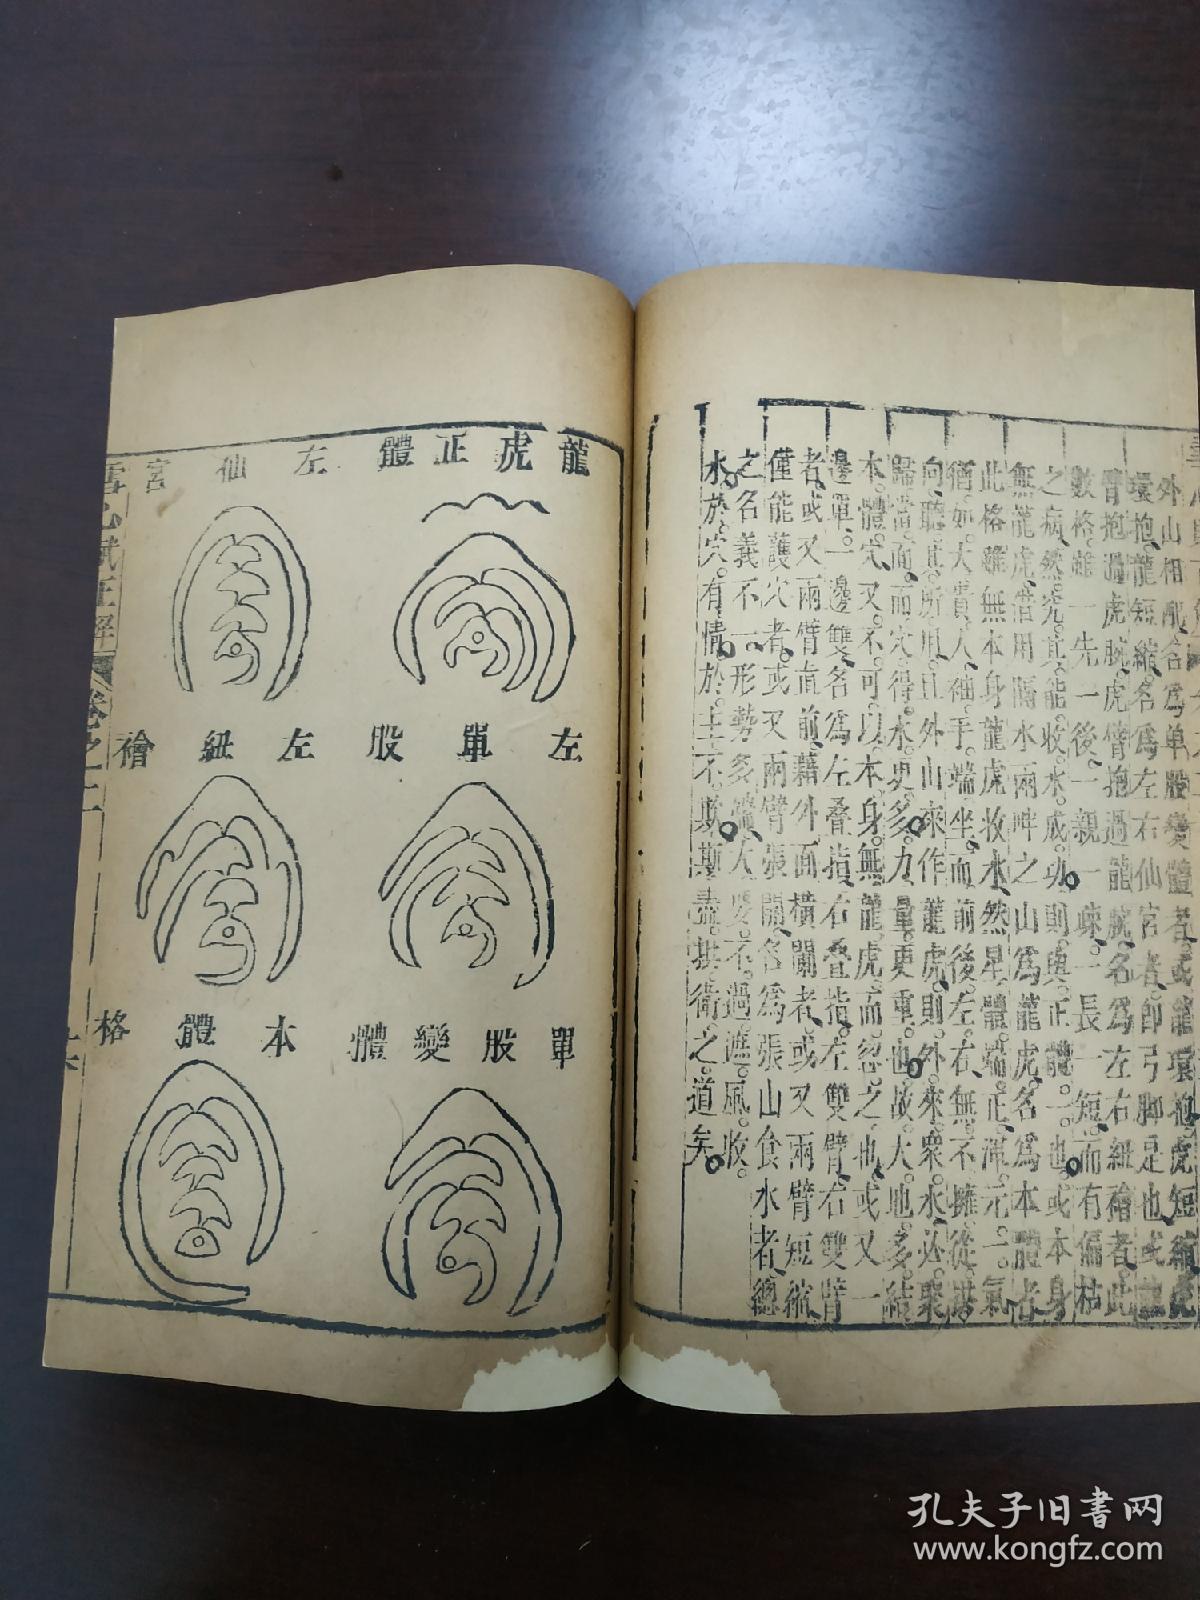 外山相配名爲單股變體者或龍環抱虎短縮虎
環抱龍短縮名爲左右仙宮者卽弓脚是也或龍
臂抱過虎腕虎臂抱過龍腕名爲左右紐襘者此
數格雖一先一後一親一疎一長一短而有偏枯
之病然究其能收水成功則與正龍一也或本身
無龍虎借用隔水兩畔之山爲龍虎名爲本體者
此格雖無本身龍虎收水然星體端正渾元一氣
猶如大貴人袖手端坐而前後左右無不擁從拱
向聽其所用且外山來作龍虎則外來衆水必聚
歸堂而而穴得水更多力量更重也故大地多結
本體穴又不可以本身無龍虎而忽之也或又一
邊單一邊雙名爲左叠指右叠指左雙臂右雙臂
者或又兩臂直前藉外面橫闌者或又兩臂短縮
僅能護穴者或又兩臂張開名爲張山食水者總
之名義不一形勢多端大要不過遮風收
水於穴有情於主不欺斯盡拱衛之道矣
龍虎正體
左仙宮
左單股
左紐襘
單股變體
本體格
雪心賦正解
卷之二
孔夫子旧書网
www.kongfz.com